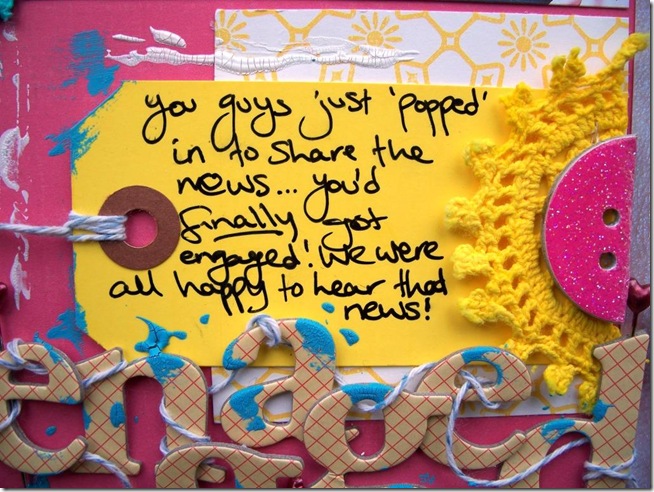 you guys just 'popped'
in to share the
news... you'd
finally got
engaged! We were
all happy to hear that
news!
engaged